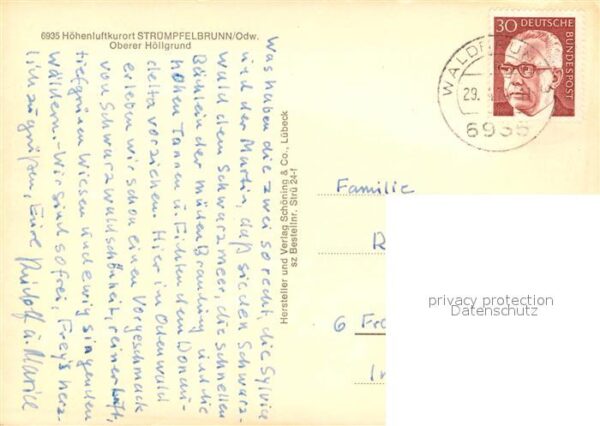 6935 Höhenluftkurort STRÜMPFELBRUNN/Odw.
Oberer Höllgrund
Was haben die zwei so recht, die Sylvia
und der Martin, daß sie den Schwarz-
wald dem Schwarzmeer, die schnellen
Bächlein der müden Brandung und die
hohen Tannen u. Fichten dem Donau-
delta vorziehen. Hier im Odenwald
erleben wir schon einen Vorgeschmack
von Schwarzwaldschönheit, reiner Luft,
tiefgrünen Wiesen und ewig singenden
Wäldern. Wir sind so frei, Frey's herz-
lich zu grüßen, Eure Rudolf u. Maria
Hersteller und Verlag Schöning & Co., Lübeck
sz Bestellnr. Strü 24-f
30 DEUTSCHE
BUNDESPOST
29.
6935
Familie
R
6 Fr
privacy protection
Datenschutz